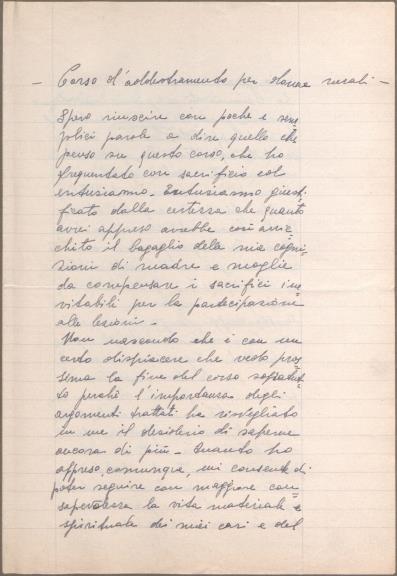 - Corso d'addestramento per donne rurali -
Spero riuscire con poche e sem=
plici parole a dire quello che
penso su questo corso, che ho
frequentato con sacrificio col
entusiasmo. Entusiasmo giusti=
ficato dalla certezza che quanto
avrei appreso avrebbe così arric=
chito il bagaglio delle mie cogni=
zioni di madre e moglie
da compensare i sacrifici ine=
vitabili per la partecipazione
alle lezioni -
Non nascondo che è con un
certo dispiacere che vedo pros=
sima la fine del corso soprattut=
to perchè l'importanza degli
argomenti trattati ha risvegliato
in me il desiderio di saperne
ancora di più - Quanto ho
appreso, comunque, mi consente di
poter seguire con maggiore con=
sapevolezza la vita materiale e
spirituale dei miei cari e del